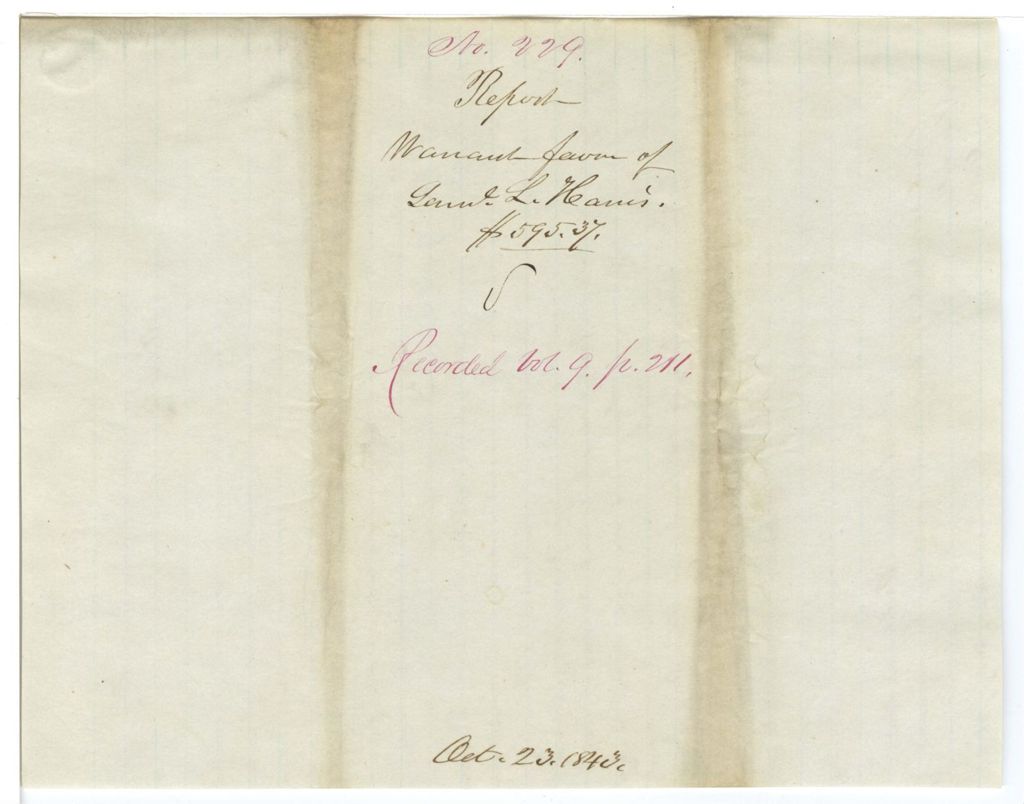 No. 229.
Report
Warrant favor of
Saml. L. Harris.
$595.37.
Recorded Vol. 9. p. 211.
Oct. 23. 1843.